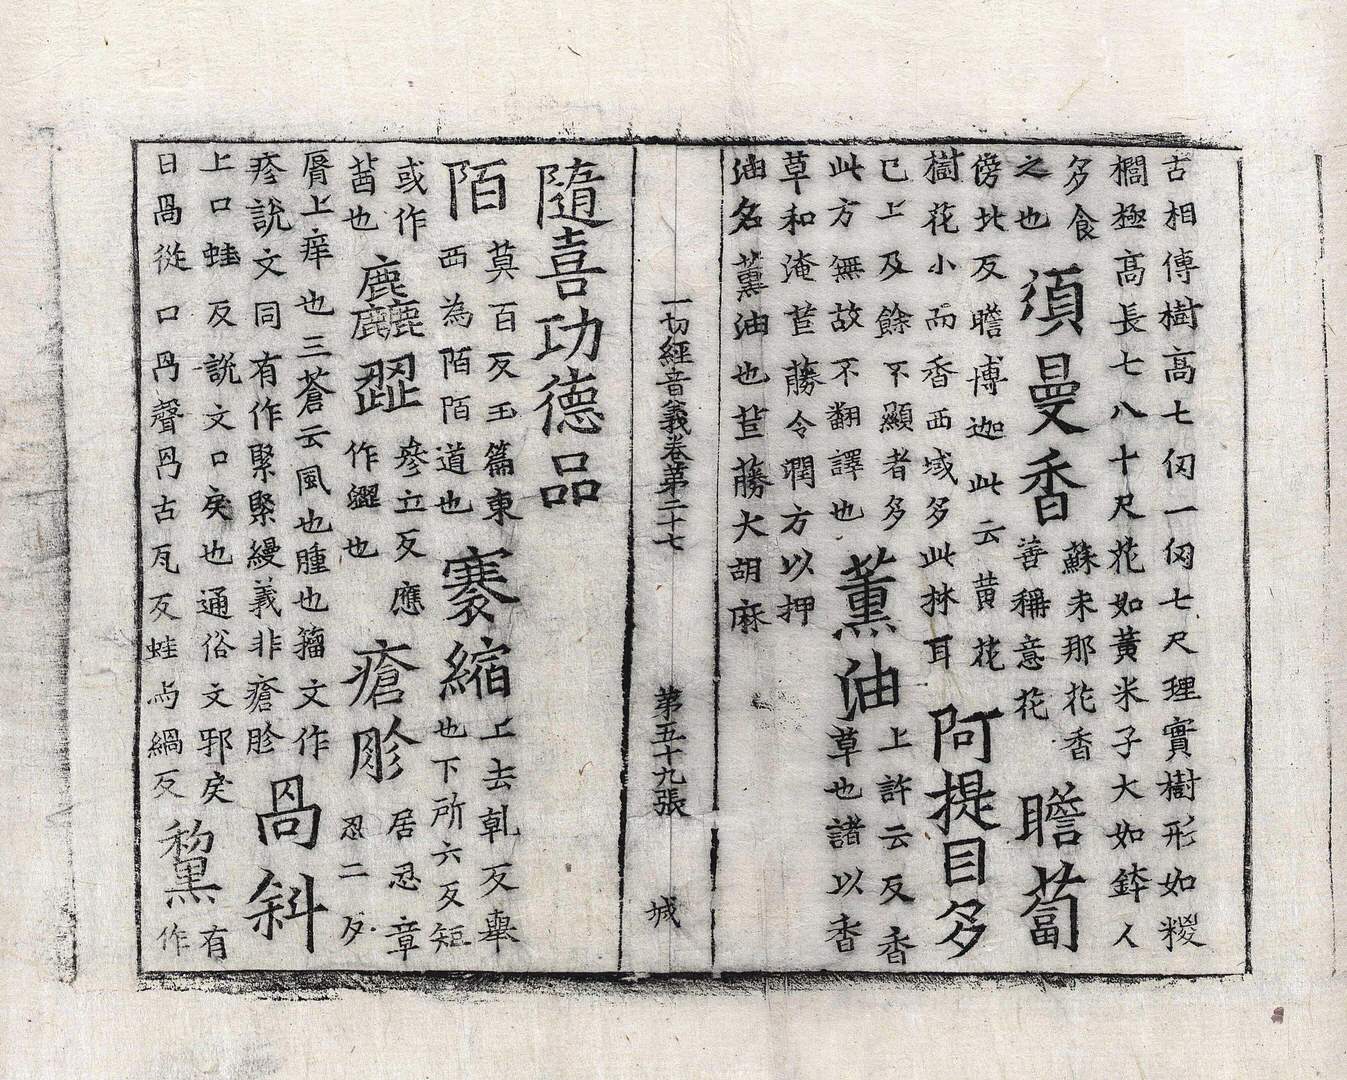 古相傳樹高七仞一仞七尺理實樹形如糉
櫚極高長七八十尺花如黃米子大如鉢人
多食
之也
須曼香
蘇末那花香
善稱意花
瞻蔔
傍北反瞻博迦此云黃花
樹花小而香西域多此林耳
阿提目多
已上及餘不顯者多
此方無故不翻譯也
薰油
上許云反香
草也諸以香
草和淹苣藤令潤方以押
油名薰油也苣藤大胡麻
一切經音義卷第二十七
第五十九張
城
隨喜功德品
陌
莫百反玉篇東
西為陌陌道也
褰縮
上去乹反舉
也下所六反短
或作
䔽也
麤澀
參立反應
作澀也
瘡胗
居忍章
忍二反
脣上痒也三蒼云風也腫也籀文作
疹說文同有作緊緊縵義非瘡胗
咼斜
上口蛙反說文口戾也通俗文邪戾
曰咼從口冎聲冎古瓦反蛙烏緺反
黧
有
作